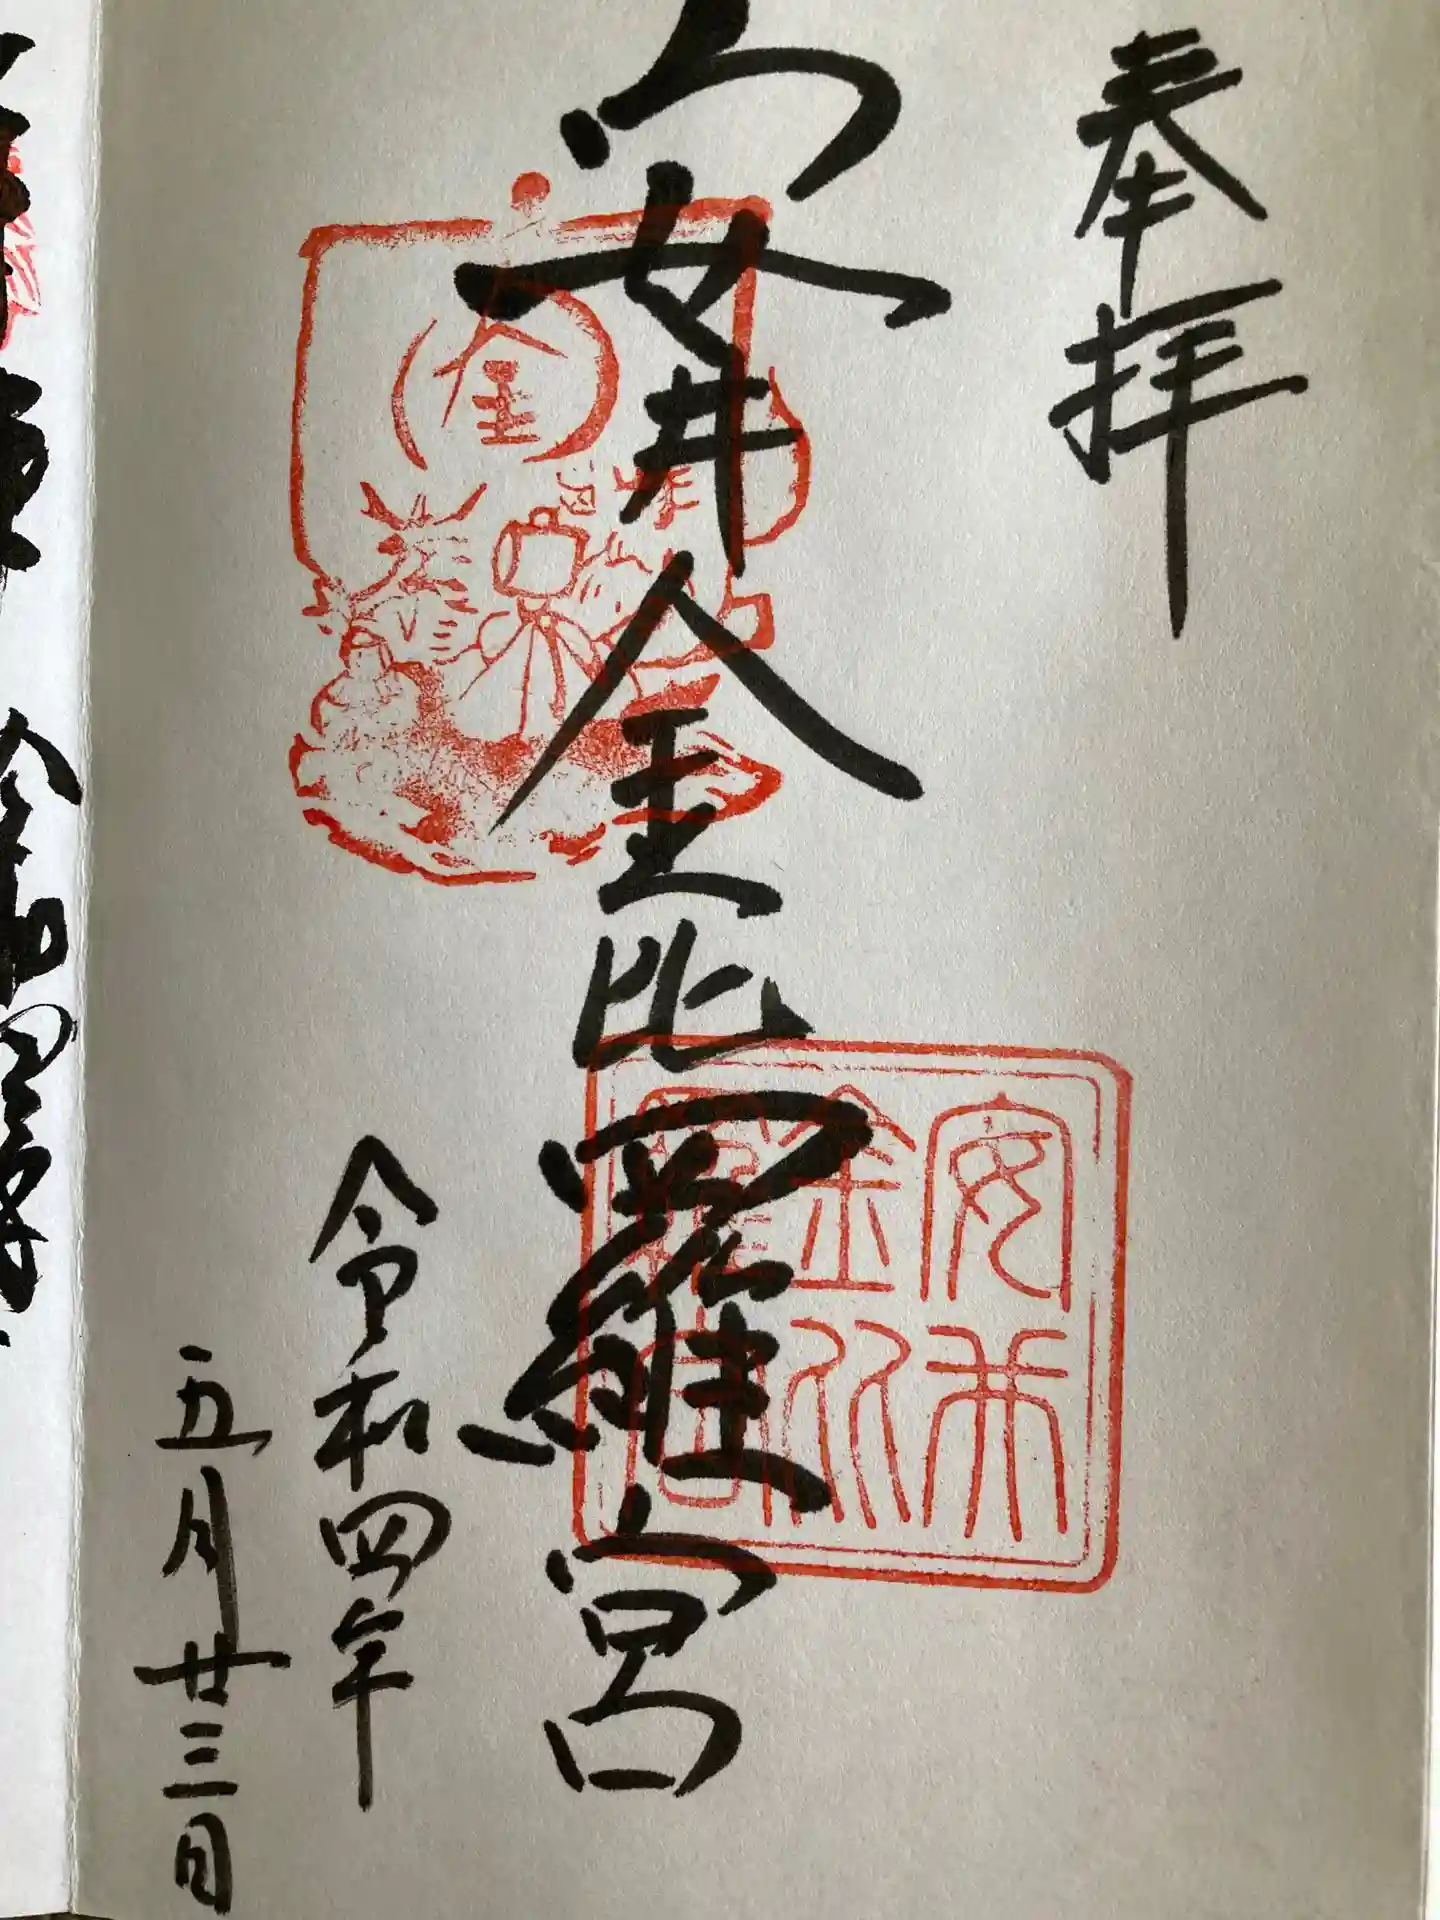 奉拝
安井金比羅宮
安井
金比
羅宮
金
令和四年
五月廿三日
令和四年